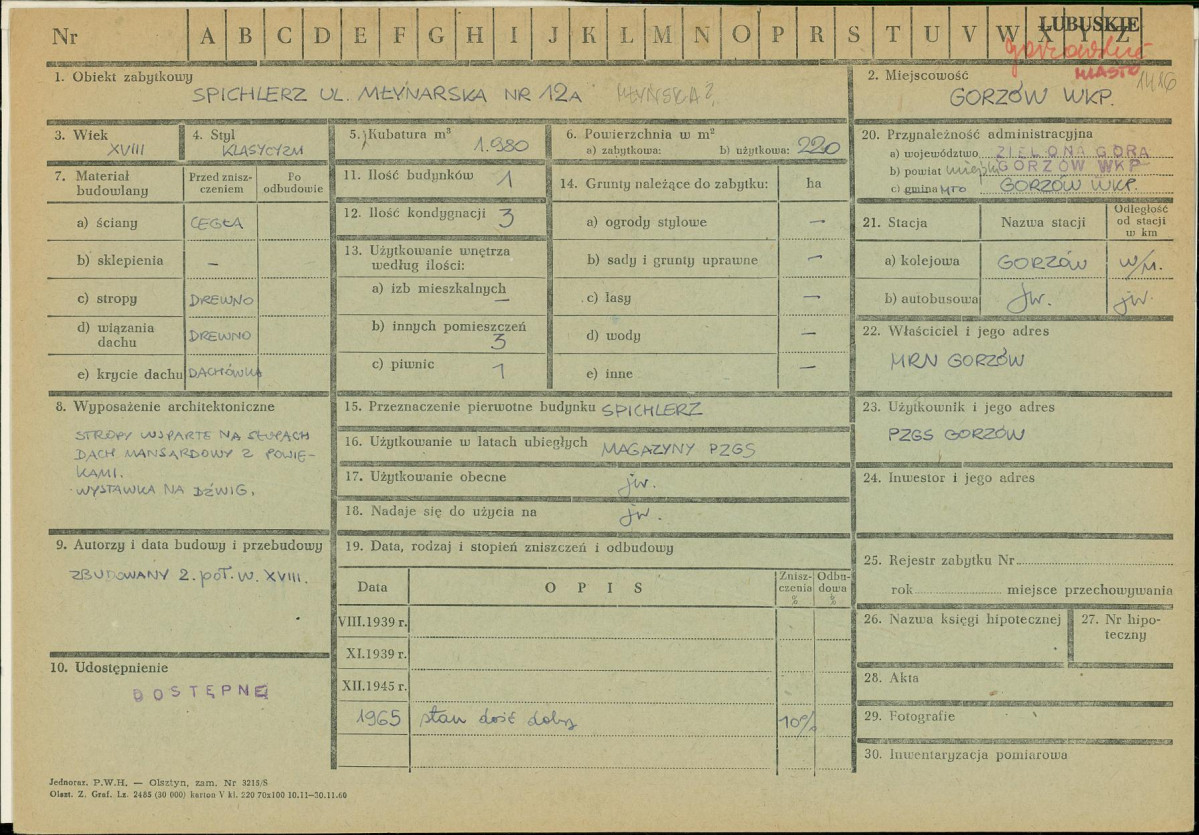 Nr A B C D E F G H I J K L M N O P R S T U V W X Y Z
LUBUSKIE
gorzowskie
MIASTO
1416
1. Obiekt zabytkowy
SPICHLERZ UL. MŁYNARSKA NR 12A MŁYŃSKA?
2. Miejscowość
GORZÓW WKP.
3. Wiek
XVIII
4. Styl
KLASYCYZM
5. Kubatura m³
1.980
6. Powierzchnia w m²
a) zabytkowa: b) użytkowa: 220
7. Materiał budowlany
Przed zniszczeniem
Po odbudowie
a) ściany CEGŁA
b) sklepienia –
c) stropy DREWNO
d) wiązania dachu DREWNO
e) krycie dachu DACHÓWKA
8. Wyposażenie architektoniczne
STROPY WSPARTE NA SŁUPACH
DACH MANSARDOWY Z POWIE-
KAMI.
WYSTAWKA NA DŹWIG.
9. Autorzy i data budowy i przebudowy
ZBUDOWANY 2. POŁ. W. XVIII.
10. Udostępnienie
DOSTĘPNE
11. Ilość budynków 1
12. Ilość kondygnacji 3
13. Użytkowanie wnętrza
według ilości:
a) izb mieszkalnych –
b) innych pomieszczeń 3
c) piwnic 1
14. Grunty należące do zabytku: ha
a) ogrody stylowe –
b) sady i grunty uprawne –
c) lasy –
d) wody –
e) inne –
15. Przeznaczenie pierwotne budynku SPICHLERZ
16. Użytkowanie w latach ubiegłych MAGAZYNY PZGS
17. Użytkowanie obecne jw.
18. Nadaje się do użycia na jw.
19. Data, rodzaj i stopień zniszczeń i odbudowy
Data OPIS Zniszczenia % Odbudowa %
VIII.1939 r.
XI.1939 r.
XII.1945 r.
1965 stan dość dobry 10%
20. Przynależność administracyjna
a) województwo ZIELONA GÓRA
b) powiat miejski GORZÓW WKP
c) gmina MTO GORZÓW WKP.
21. Stacja Nazwa stacji Odległość od stacji w km
a) kolejowa GORZÓW W/M.
b) autobusowa jw. jw.
22. Właściciel i jego adres
MRN GORZÓW
23. Użytkownik i jego adres
PZGS GORZÓW
24. Inwestor i jego adres
25. Rejestr zabytku Nr
rok miejsce przechowywania
26. Nazwa księgi hipotecznej
27. Nr hipo-
teczny
28. Akta
29. Fotografie
30. Inwentaryzacja pomiarowa
Jednoraz. P.W.H. — Olsztyn, zam. Nr 3215/S
Olszt. Z. Graf. Lz. 2485 (30 000) karton V kl. 220 70x100 10.11–30.11.60